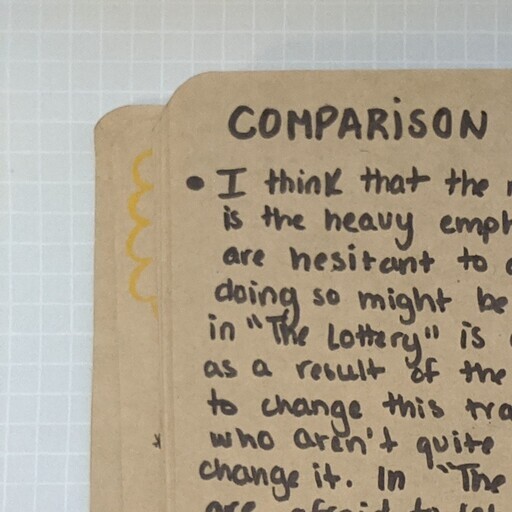 COMPARISON
• I think that the
is the heavy emph
are hesitant to
doing so might be
in "The Lottery" is
as a result of the
to change this tra
who aren't quite
change it. In "The
are afraid to